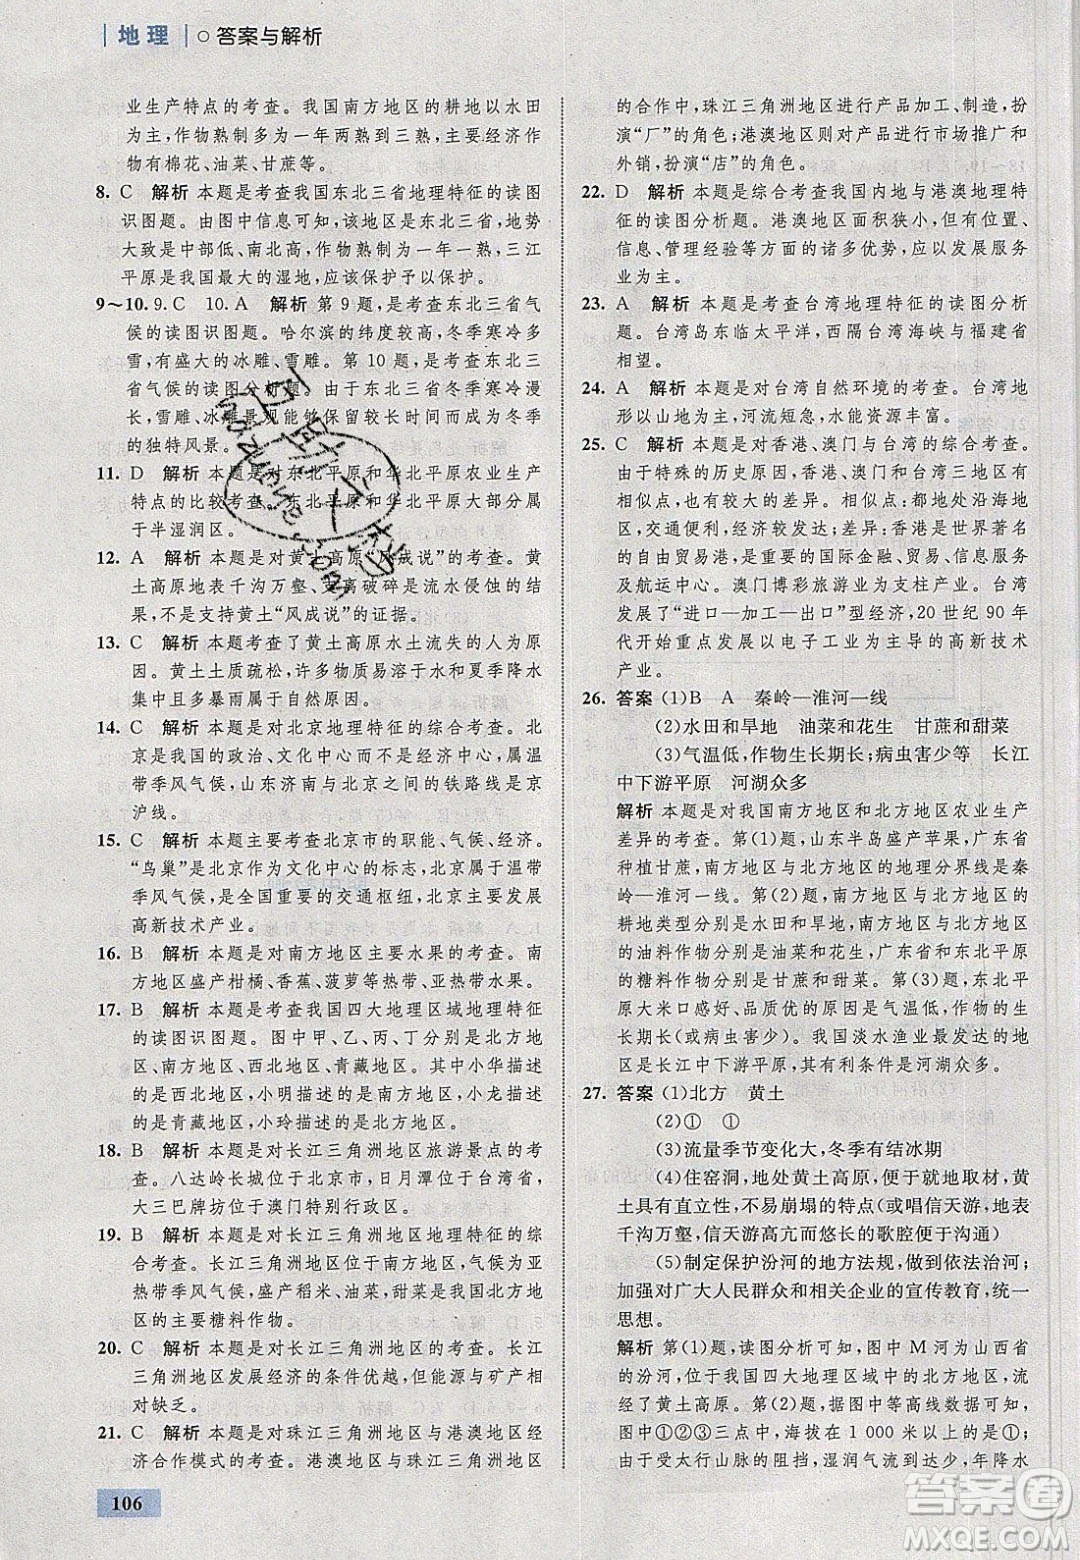 地理 ○答案与解析
业生产特点的考查。我国南方地区的耕地以水田
为主,作物熟制多为一年两熟到三熟,主要经济作
物有棉花、油菜、甘蔗等。
8. C 解析 本题是考查我国东北三省地理特征的读图
识图题。由图中信息可知,该地区是东北三省,地势
大致是中部低、南北高,作物熟制多为一年一熟,三江
平原是我国最大的湿地,应该保护予以保护。
9～10. 9. C 10. A 解析 第 9 题,是考查东北三省气
候的读图识图题。哈尔滨的纬度较高,冬季寒冷多
雪,有盛大的冰雕、雪雕。第 10 题,是考查东北三
省气候的读图分析题。由于东北三省冬季寒冷漫
长,雪雕、冰雕景观能够保留较长时间而成为冬季
的独特风景。
11. D 解析 本题是对东北平原和华北平原农业生产
特点的比较考查。东北平原和华北平原大部分属
于半湿润区。
12. A 解析 本题是对黄土高原“风成说”的考查。黄
土高原地表千沟万壑、支离破碎是流水侵蚀作用的
结果,不是支持黄土“风成说”的证据。
13. C 解析 本题考查了黄土高原水土流失的人为原
因。黄土土质疏松,许多物质易溶于水和夏季降水
集中且多暴雨属于大自然原因。
14. C 解析 本题是对北京地理特征的综合考查。北
京是我国的政治、文化中心而不是经济中心,属温
带季风气候,山东济南与北京之间的铁路线是京
沪线。
15. C 解析 本题主要考查北京市的职能、气候、经济。
“鸟巢”是北京作为文化中心的标志,北京属于温带
季风气候,是全国重要的交通枢纽,其主要发展
高新技术产业。
16. B 解析 本题是对南方地区主要水果的考查。南
方地区盛产柑橘、香蕉、菠萝等亚热带、热带水果。
17. B 解析 本题是考查我国四大地理区域地理特征
的读图识图题。图中甲、乙、丙、丁分别是北方地
区、南方地区、西北地区、青藏地区。其中小华描述
的是西北地区,小明描述的是南方地区,小龙描述
的是青藏地区,小玲描述的是北方地区。
18. B 解析 本题是对长江三角洲地区旅游景点的考
查。八达岭长城位于北京市,日月潭位于台湾省,
大三巴牌坊位于澳门特别行政区。
19. B 解析 本题是对长江三角洲地区地理特征的综
合考查。长江三角洲地区地处南方地区,属于亚热
带季风气候,盛产稻米、油菜,甜菜是属于北方地
区的主要糖料作物。
20. C 解析 本题是对长江三角洲地区的考查。长江
三角洲地区发展经济的条件优越,但能源与矿产相
对缺乏。
21. C 解析 本题是对珠江三角洲地区与港澳地区经
济合作模式的考查。港澳地区与珠江三角洲地区
106
的合作中,珠江三角洲地区进行产品加工、制造,扮
演“厂”的角色;港澳地区则对产品进行市场推广和
外销,扮演“店”的角色。
22. D 解析 本题是综合考查我国内地与港澳地理特
征的读图分析题。港澳地区面积狭小,但有位置、
信息、管理经验等的诸多优势,应以发展服务
业为主。
23. A 解析 本题是考查台湾地理特征的读图分析
题。台湾岛东临太平洋,西隔台湾海峡与福建省
相望。
24. A 解析 本题是对台湾自然环境的考查。台湾地
形以山地为主,河流短急,水能资源丰富。
25. C 解析 本题是对香港、澳门与台湾的综合考查。
由于特殊的历史原因,香港、澳门与台湾三地区有
相似点,也有较大的差异。相似点:都地处沿海地
区,交通便利,经济较发达;差异:香港是世界著名
的自由贸易港,是重要的国际金融、贸易、信息服务
及航运中心。澳门博彩旅游业为支柱产业。台湾
发展了“进口—加工—出口”型经济,20 世纪 90 年
代开始重点发展以电子工业为主导的高新技术
产业。
26. 答案 (1)B A 秦岭—淮河一线
(2)水田和旱地 油菜和花生 甘蔗和甜菜
(3)气温低,作物生长期长;病虫害少等 长江
中下游平原 河湖众多
解析 本题是对我国南方地区和北方地区农业生产
差异的考查。第(1)题,山东半岛盛产苹果,广东省
主要种植甘蔗,南方地区与北方地区的地理分界线是秦
岭—淮河一线。第(2)题,南方地区与北方地区的
耕地类型分别是水田和旱地,南方地区与北方地区
的油料作物分别是油菜和花生,广东省和东北平原
的糖料作物分别是甘蔗和甜菜。第(3)题,东北平
原大米口感好、品质优的原因是气温低,作物的生
长期长(或病虫害少)。我国淡水渔业最发达的地
区是长江中下游平原,其有利条件是河湖众多。
27. 答案 (1)北方 黄土
(2)① ①
(3)流量季节变化大,冬季有结冰期
(4)住窑洞,地处黄土高原,就地取材,黄
土具有直立性,不易崩塌的特点(或唱信天游,地表
千沟万壑,信天游高亢而悠长的歌腔便于沟通)
(5)制定保护汾河的地方法规,做到依法治河;
加强对广大人民群众和相关企业的宣传教育,统一
思想。
解析 第(1)题,读图分析可知,图中 M 河为山西省
的汾河,位于我国四大地理区域中的北方地区,流
经了黄土高原。第(2)题,据图中等高线数据可知,
图中①②③中,海拔在 1 000 米以上的是①;同时,
受太行山脉的阻挡,湿润气流难以到达,年降水
答案圈
MXQE.COM